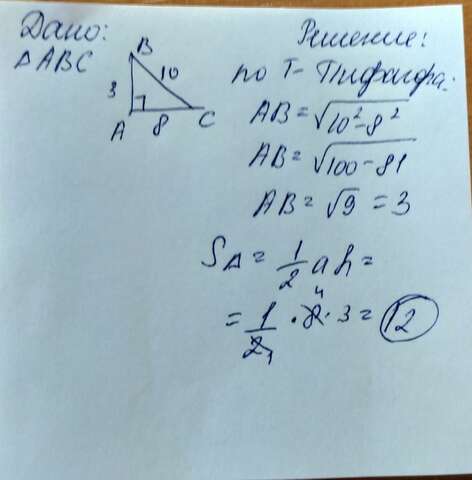 Дано:
Δ ABC
B
3
10
A
8
C
Решение:
по Т- Пифагора:
AB = √10² - 8²
AB = √100 - 81
AB = √9 = 3
SΔ = 1/2 a h =
= 1/2 · 8 · 3 = 12
4
1